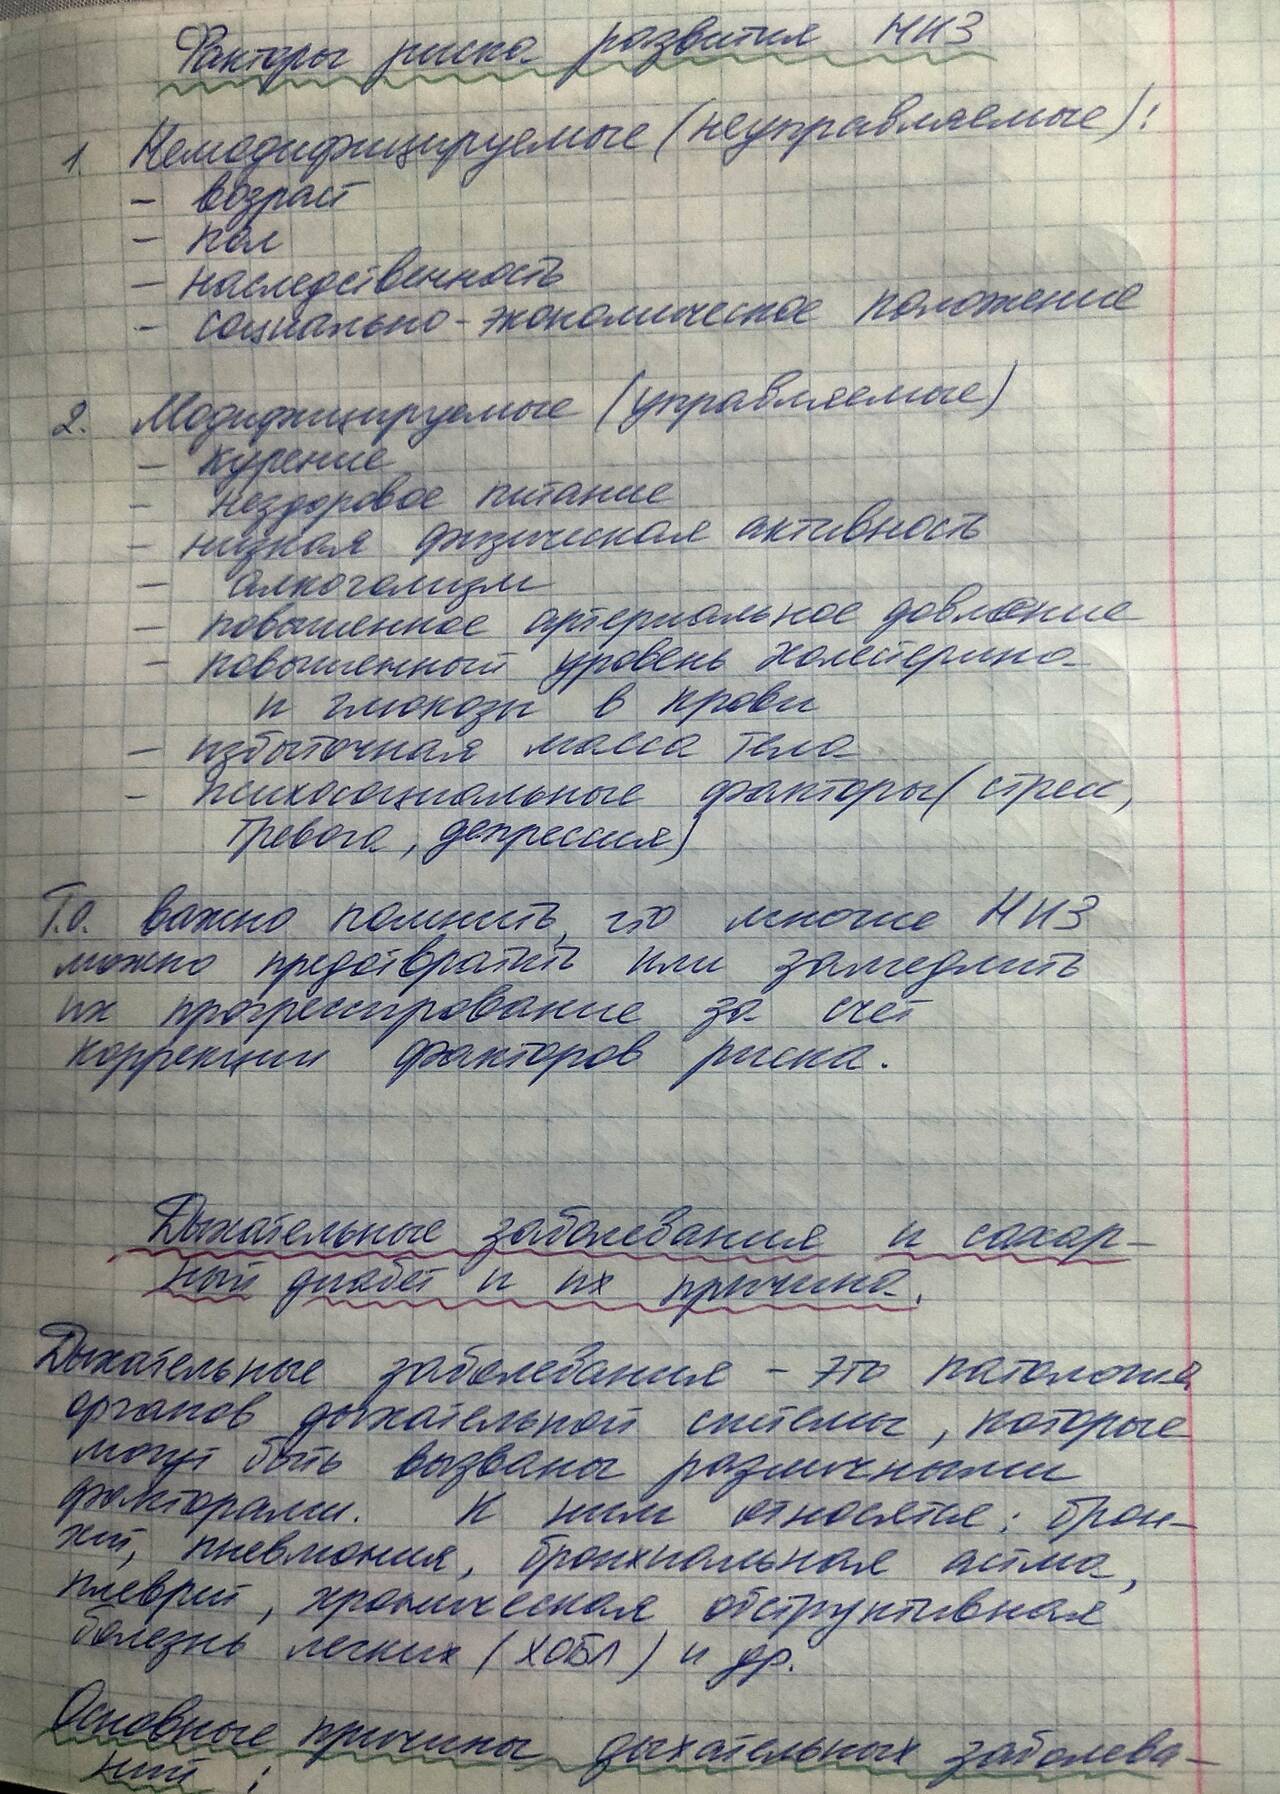 Факторы риска развития НИЗ
1 Немодифицируемые (неуправляемые):
- возраст
- пол
- наследственность
- социально-экономическое положение
2. Модифицируемые (управляемые)
- курение
- нездоровое питание
- низкая физическая активность
- алкоголизм
- повышенное артериальное довление
- повышенный уровень холестерина
и глюкозы в крови
- избыточная масса тела
- психосоциальные факторы (стресс,
тревога, депрессия)
Т.о. важно помнить, что многие НИЗ
можно предотвратить или замедлить
их прогрессирование за счёт
коррекции факторов риска.
Дыхательные заболевания и сахар-
ный диабет и их причина.
Дыхательные заболевания - это патология
органов дыхательной системы, которые
могут быть вызваны различными
факторами. К ним относятся: брон-
хит, пневмония, бронхиальная астма,
плеврит, хроническая обструктивная
болезнь легких (ХОБЛ) и др.
Основные причины дыхательных заболева-
ний: